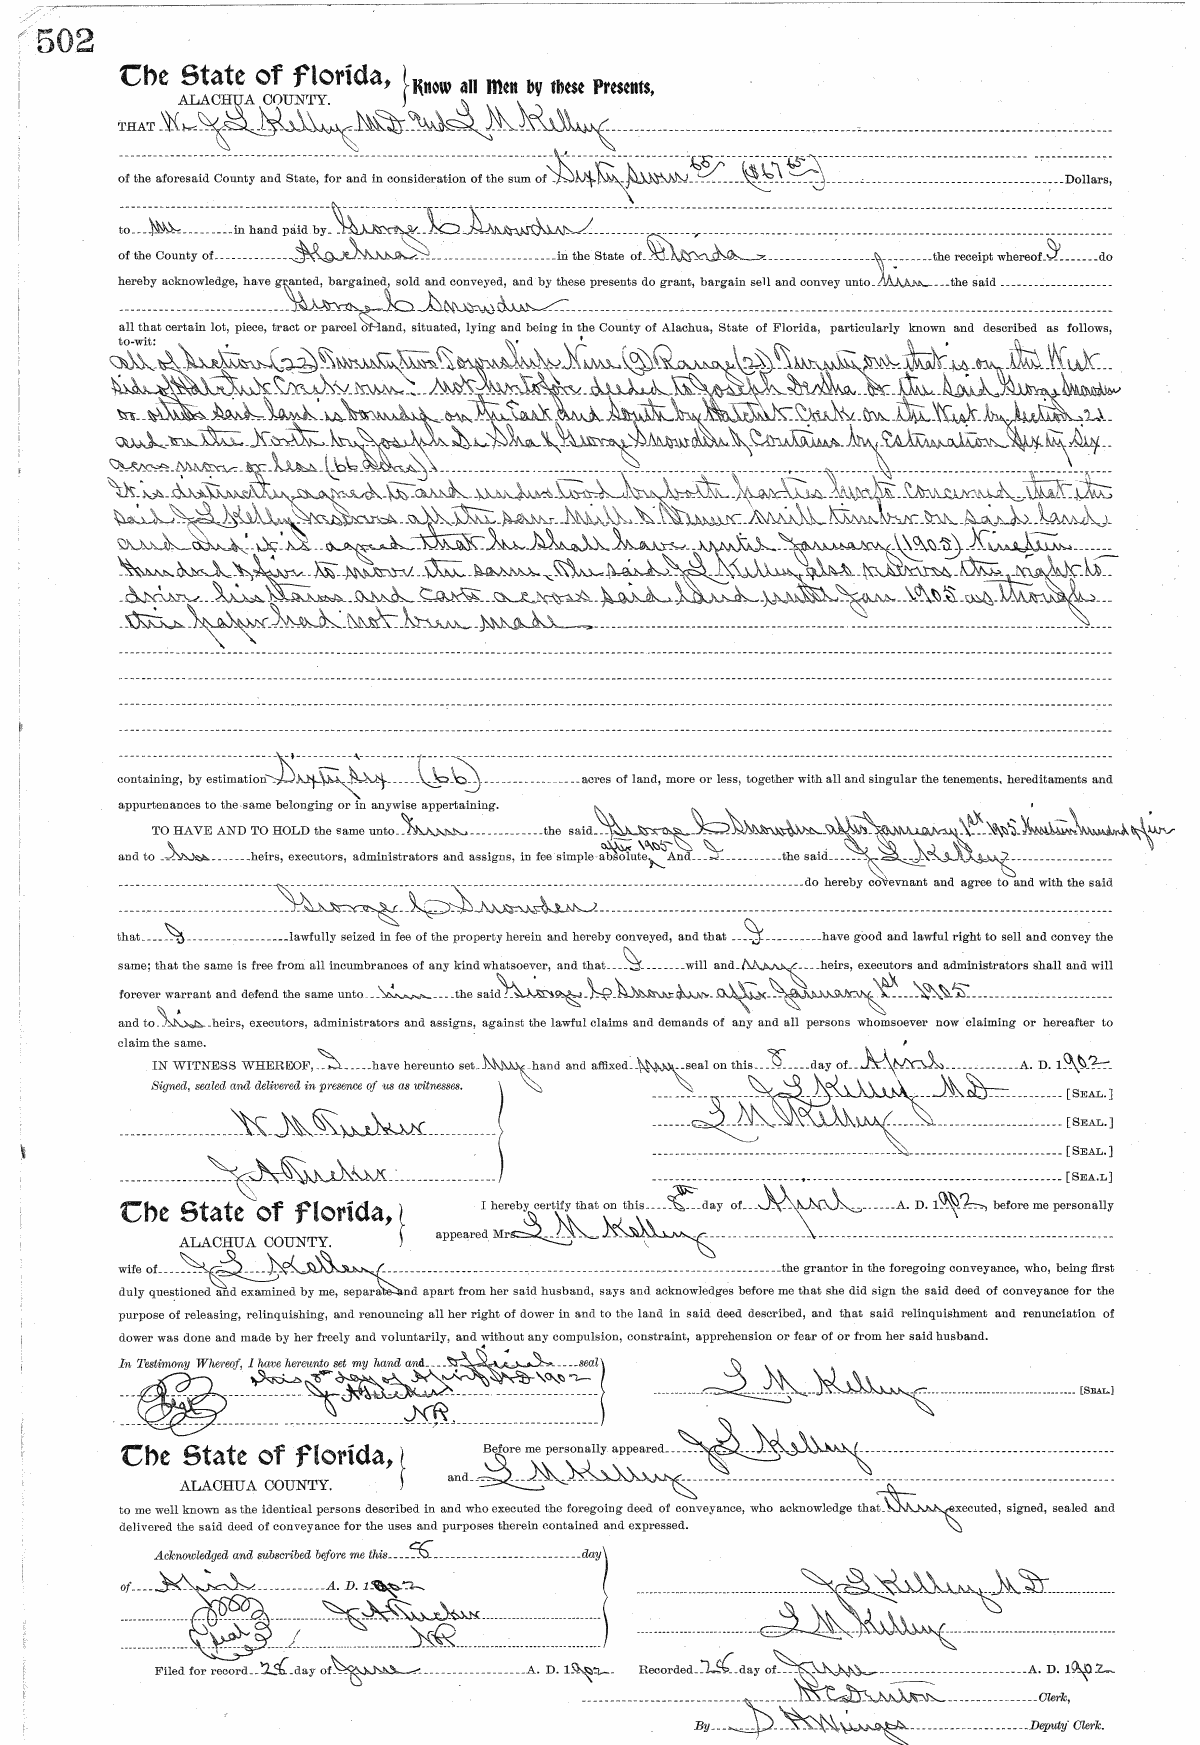 502
The State of Florida, Know all Men by these Presents,
ALACHUA COUNTY.
THAT We J L Kelley M D and L M Kelley
of the aforesaid County and State, for and in consideration of the sum of Sixty Seven 65 ($67 65) Dollars,
to me in hand paid by George C Snowden
of the County of Alachua in the State of Florida the receipt whereof I do
hereby acknowledge, have granted, bargained, sold and conveyed, and by these presents do grant, bargain sell and convey unto him the said
George C Snowden
all that certain lot, piece, tract or parcel of land, situated, lying and being in the County of Alachua, State of Florida, particularly known and described as follows,
to-wit:
All of Section (22) Twenty two Township Nine (9) Range (21) Twenty one that is on the West
Side of Hatchet Creek run. not hertofore deeded to Joseph Desha or the Said George Snowden
or others Said land is bounded on the East and South by Hatchet Creek on the West by Section 21
and on the North by Joseph De Sha & George Snowden & Contains by Estimation Sixty Six
acres more or less (66 acres).
It is distinctly agreed to and understood by both parties hereto Concerned that the
said J L Kelley reserves all the saw mill timber on said land
and and it is agreed that he shall have until January (1905) Nineteen
Hundred & five to move the same. The said J L Kelley also reserves the right to
drive his teams and carts across said land until Jan 1905 as though
this paper had not been made
containing, by estimation Sixty Six (66) acres of land, more or less, together with all and singular the tenements, hereditaments and
appurtenances to the same belonging or in anywise appertaining.
TO HAVE AND TO HOLD the same unto him the said George C Snowden after January 1st 1905 Nineteen hundred & five
and to his heirs, executors, administrators and assigns, in fee simple absolute, after 1905 And I the said J L Kelley
do hereby covevnant and agree to and with the said
George C Snowden
that I lawfully seized in fee of the property herein and hereby conveyed, and that I have good and lawful right to sell and convey the
same; that the same is free from all incumbrances of any kind whatsoever, and that I will and my heirs, executors and administrators shall and will
forever warrant and defend the same unto him the said George C Snowden after January 1st 1905
and to his heirs, executors, administrators and assigns, against the lawful claims and demands of any and all persons whomsoever now claiming or hereafter to
claim the same.
IN WITNESS WHEREOF, I have hereunto set my hand and affixed my seal on this 8 day of April A. D. 1902
Signed, sealed and delivered in presence of us as witnesses.
J L Kelley M D [SEAL.]
W M Tucker
L M Kelley [SEAL.]
[SEAL.]
J A Tucker
[SEA.L]
The State of Florida, I hereby certify that on this 8th day of April A. D. 1902, before me personally
ALACHUA COUNTY. appeared Mrs L M Kelley
wife of J L Kelley the grantor in the foregoing conveyance, who, being first
duly questioned and examined by me, separate and apart from her said husband, says and acknowledges before me that she did sign the said deed of conveyance for the
purpose of releasing, relinquishing, and renouncing all her right of dower in and to the land in said deed described, and that said relinquishment and renunciation of
dower was done and made by her freely and voluntarily, and without any compulsion, constraint, apprehension or fear of or from her said husband.
In Testimony Whereof, I have hereunto set my hand and official seal
this 8th day of April A D 1902
Seal J A Tucker L M Kelley [SEAL.]
N.P.
The State of Florida, Before me personally appeared J L Kelley
ALACHUA COUNTY. and L M Kelley
to me well known as the identical persons described in and who executed the foregoing deed of conveyance, who acknowledge that they executed, signed, sealed and
delivered the said deed of conveyance for the uses and purposes therein contained and expressed.
Acknowledged and subscribed before me this 8 day
of April A. D. 1902 J L Kelley M D
J A Tucker L M Kelley
Seal NP
Filed for record 28 day of June A. D. 1902 Recorded 28 day of June A. D. 1902
H C Denton Clerk,
By S H Wienges Deputy Clerk.